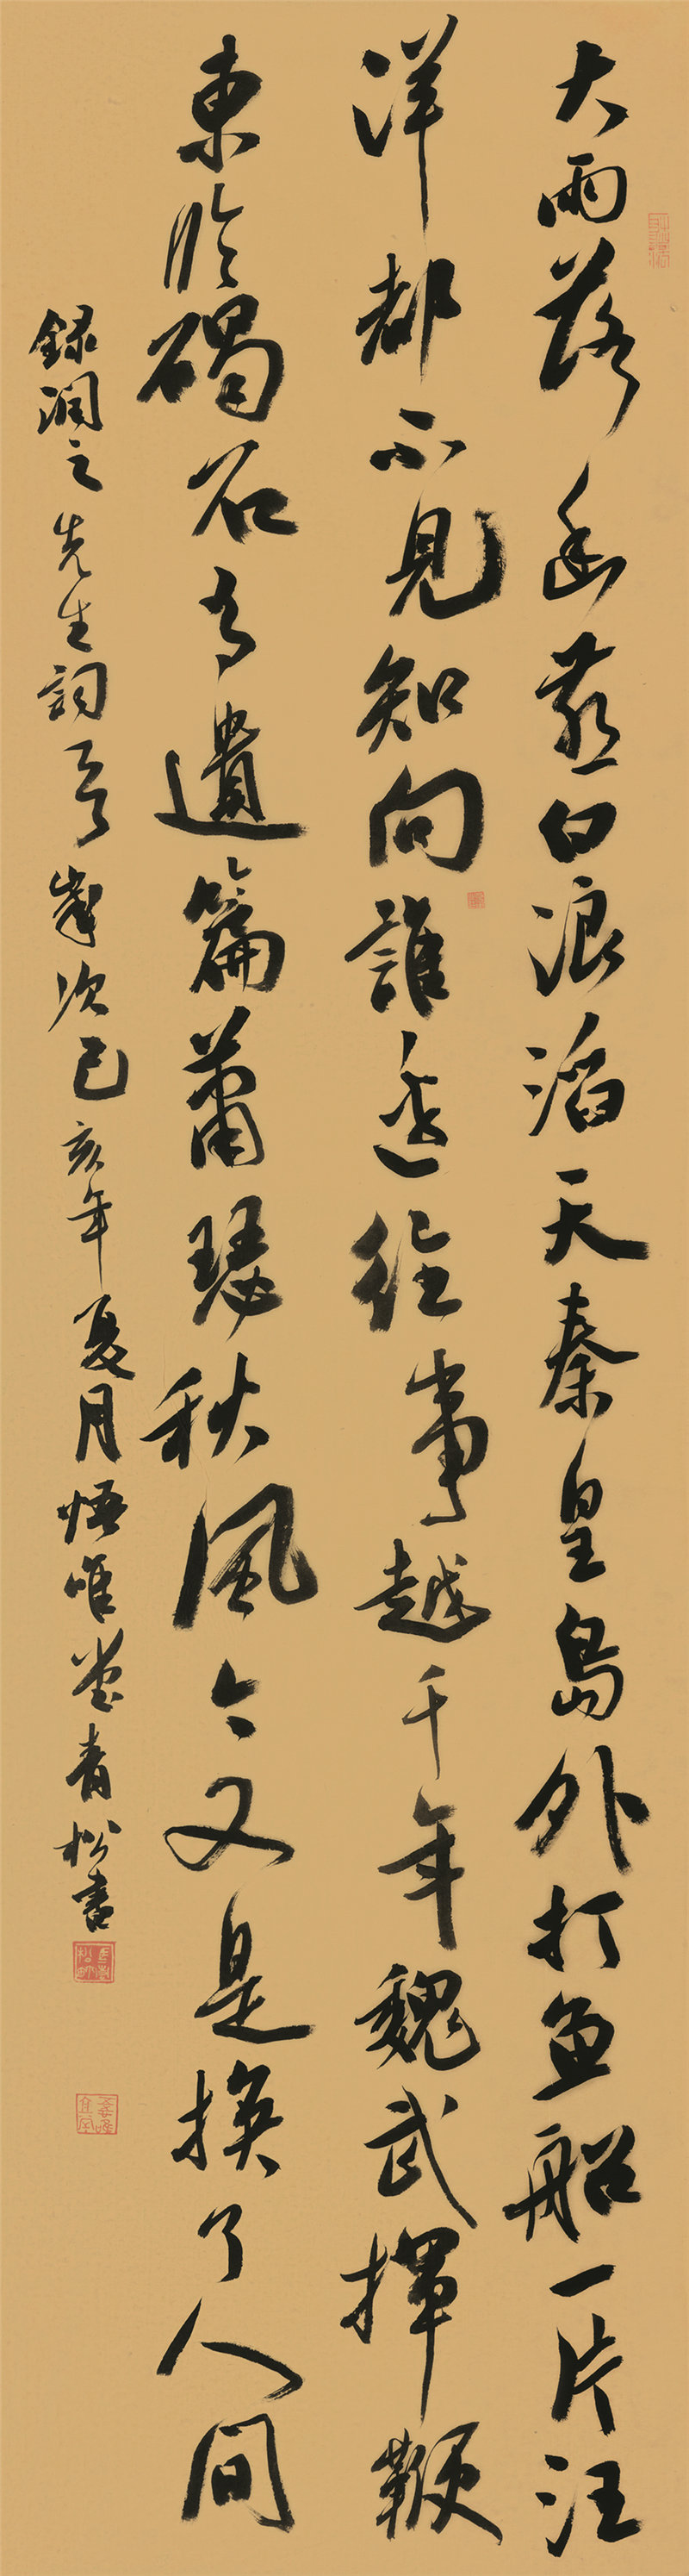 大雨落幽燕白浪滔天秦皇島外打魚船一片汪
洋都不見知向誰邊往事越千年魏武揮鞭
東臨碣石有遺篇蕭瑟秋風今又是換了人間
錄潤之先生詞一首歲次己亥年夏月悟唯堂青松書